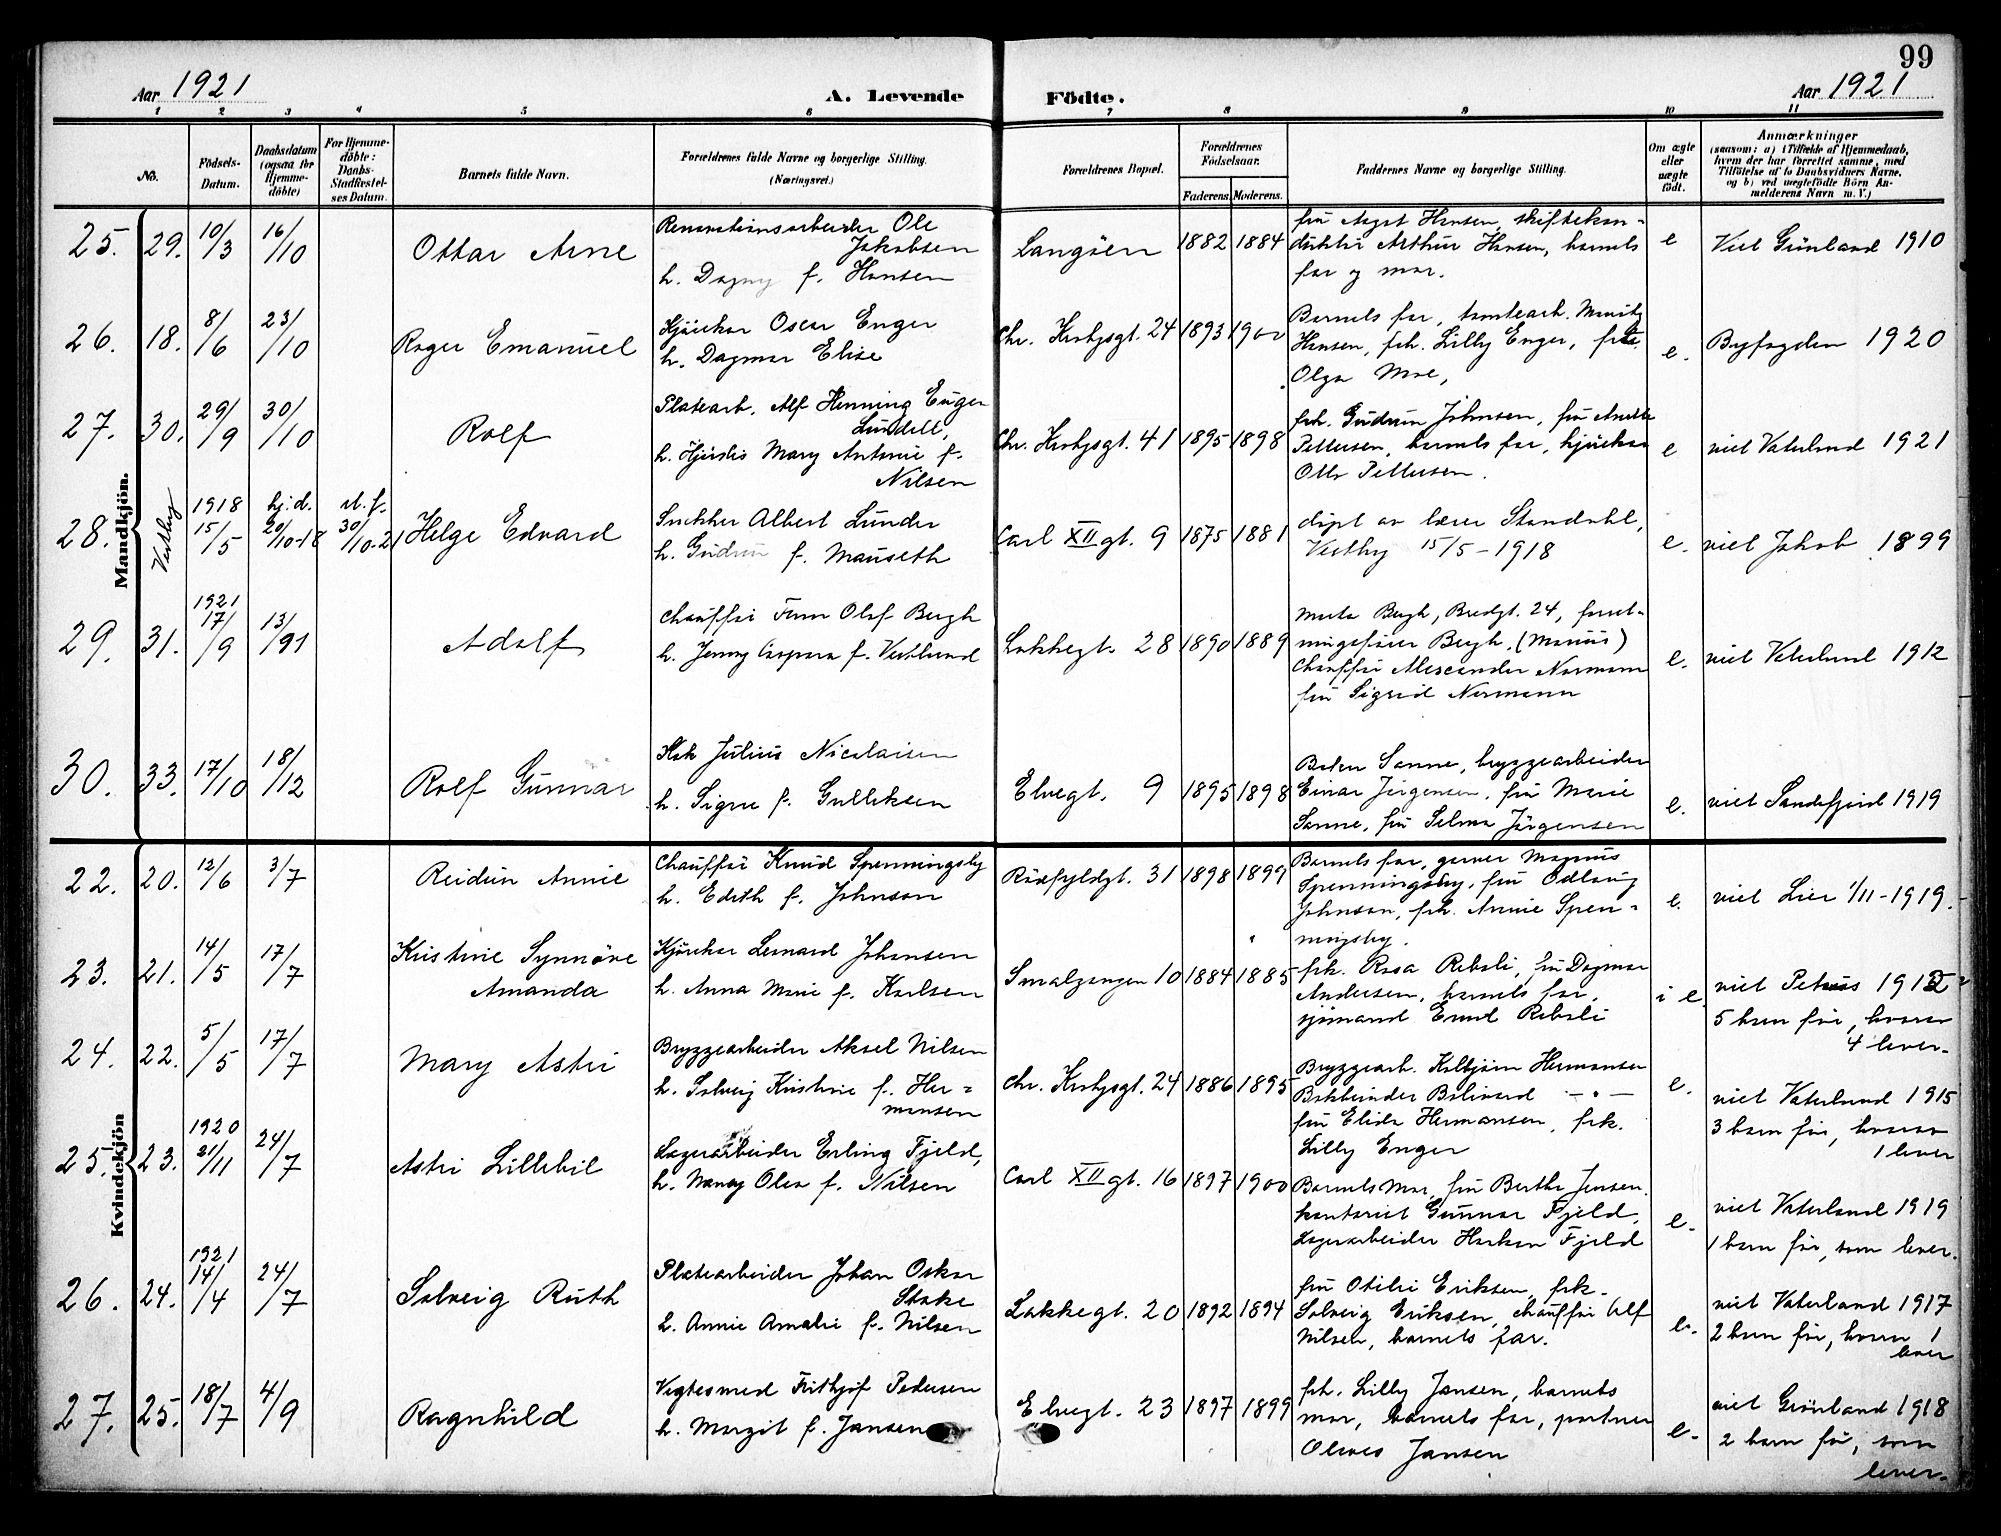 99
Aar 1921
A. Levende
Födte.
Aar 1921
1 2 3 4 5 6 7 8 9 10 11
No.
Födsels-
Datum.
Daabsdatum
(ogsaa for
Hjemme-
döbte)
For Hjemme-
döbte:
Daabs-
Stadfæstel-
ses Datum.
Barnets fulde Navn.
Forældrenes fulde Navne og borgerlige Stilling.
(Næringsvei.)
Forældrenes Bopæl.
Forældrenes
Födselsaar.
Faderens. Moderens.
Faddernes Navne og borgerlige Stilling.
Om ægte
eller
uægte
födt.
Anmærkninger
(saasom: a) i Tilfælde af Hjemmedaab,
hvem der har forrettet samme, med
Tilföielse af to Daabsvidners Navne,
og b) ved uægtefödte Börn An-
melderens Navn m. V.)
Mandkjön.
25. 29. 10/3 16/10
Ottar Arne
Renovationsarbeider Ole
Jakobsen
h. Dagny f. Hansen
Langöen 1882 1884
fru Aagot Hansen, skiftekon-
duktör Arthur Hansen, barnets
far og mor.
e
Viet Grünland 1910
26. 18. 8/6 23/10
Roger Emanuel
Kjörekar Oscar Enger
h. Dagmar Elise
Chr. Krohgsgt. 24 1893 1900
Barnets far, tomtearb. Moritz
Hansen, frk. Lilly Enger,
Olga Moe,
e.
Byfogden 1920
27. 30. 29/9 30/10
Rolf
Platearb. Alf Henning Enger
Lundell,
h. Hjördis Mary Antonie f.
Nilsen
Chr. Krohgsgt. 41 1895 1898
frk. Gudrun Johnsen, fru Anette
Pettersen, barnets far, kjörekar
Otto Pettersen.
e
viet Vaterland 1921
28. Vestby 1918 15/5 hj.d. 20/10-18 st. f. 30/10-21
Helge Edvard
Snekker Albert Lunder
h. Gudrun f. Mauseth
Carl XII gt. 9 1875 1881
döpt av lærer Standahl,
Vestby 15/5-1918
e.
viet Jakob 1899
29. 31. 1921 17/9 13/91
Adolf
chaufför Finn Olof Bergh
h. Jenny Caspara f. Vestlund
Lakkegt. 28 1890 1889
Bergh, Bredgt. 24, forret-
ningsförer Bergh. (Marius)
Chaufför Alexander Normann
fru Sigrid Normann
e.
viet Vaterland 1912
30. 33. 17/10 18/12
Rolf Gunnar
Julius Nicolaisen
h. Signe f. Gulliksen
Elvegt. 9 1895 1898
Sanne, bryggearbeider
Einar Jörgensen, fru Marie
Sanne, fru Selma Jörgensen
e.
viet Sandefjord 1919
Kvindekjön
22. 20. 12/6 3/7
Reidun Annie
Chaufför Knud Spenningsby
h. Edith f. Johnson
Rödfyldgt. 31 1898 1899
Barnets far, garver Magnus
Spenningsby, fru Odlaug
Johnson, frk. Annie Spen-
ningsby.
e.
viet Lier 1/11-1919.
23. 21. 14/5 17/7
Kristine Synnöve
Amanda
Kjörekar Lenard Johansen
h. Anna Marie f. Karlsen
Smalgangen 10 1884 1885
frk. Rosa Reboli, fru Dagmar
Andersen, barnets far,
sjömand Reboli
i e.
viet Petrus
5 barn för, hvorav
4 lever.
24. 22. 5/5 17/7
Mary Astri
Bryggearbeider Aksel Nilsen
h. Solveig Kristine f. Her-
mansen
Chr. Krohgsgt. 24 1886 1895
Bryggearb. Kolbjörn Hermansen
Bokbinder Bolivard — " —
fru Elida Hermansen, frk.
Lilly Enger
e.
viet Vaterland 1915
3 barn för, hvorav
1 lever
25. 23. 1920 21/11 24/7
Astri Lillebil
Lagerarbeider Erling Fjeld,
h. Nanny Olea f. Nilsen
Carl XII gt. 16 1897 1900
Barnets Mor, fru Berthe Jensen,
kontorist Gunnar Fjeld,
Lagerarbeider Haakon Fjeld
e.
viet Vaterland 1919
1 barn för, som lever.
26. 24. 1921 14/4 24/7
Solveig Ruth
Platearbeider Johan Oskar
Stake
h. Annie Amalie f. Nilsen
Lakkegt. 20 1892 1894
fru Otilie Eriksen, frk.
Solveig Eriksen, chaufför Alf
Nilsen, barnets far.
e.
viet Vaterland 1917
2 barn för, hvorav 1
lever
27. 25. 18/7 4/9
Ragnhild
Vegtesmed Frithjof Pedersen
h. Margit f. Jansen
Elvegt. 23 1897 1899
frk. Lilly Jansen, barnets
mor, barnets far, portner
Jansen
e.
viet Grönland 1918
2 barn för, som
lever.